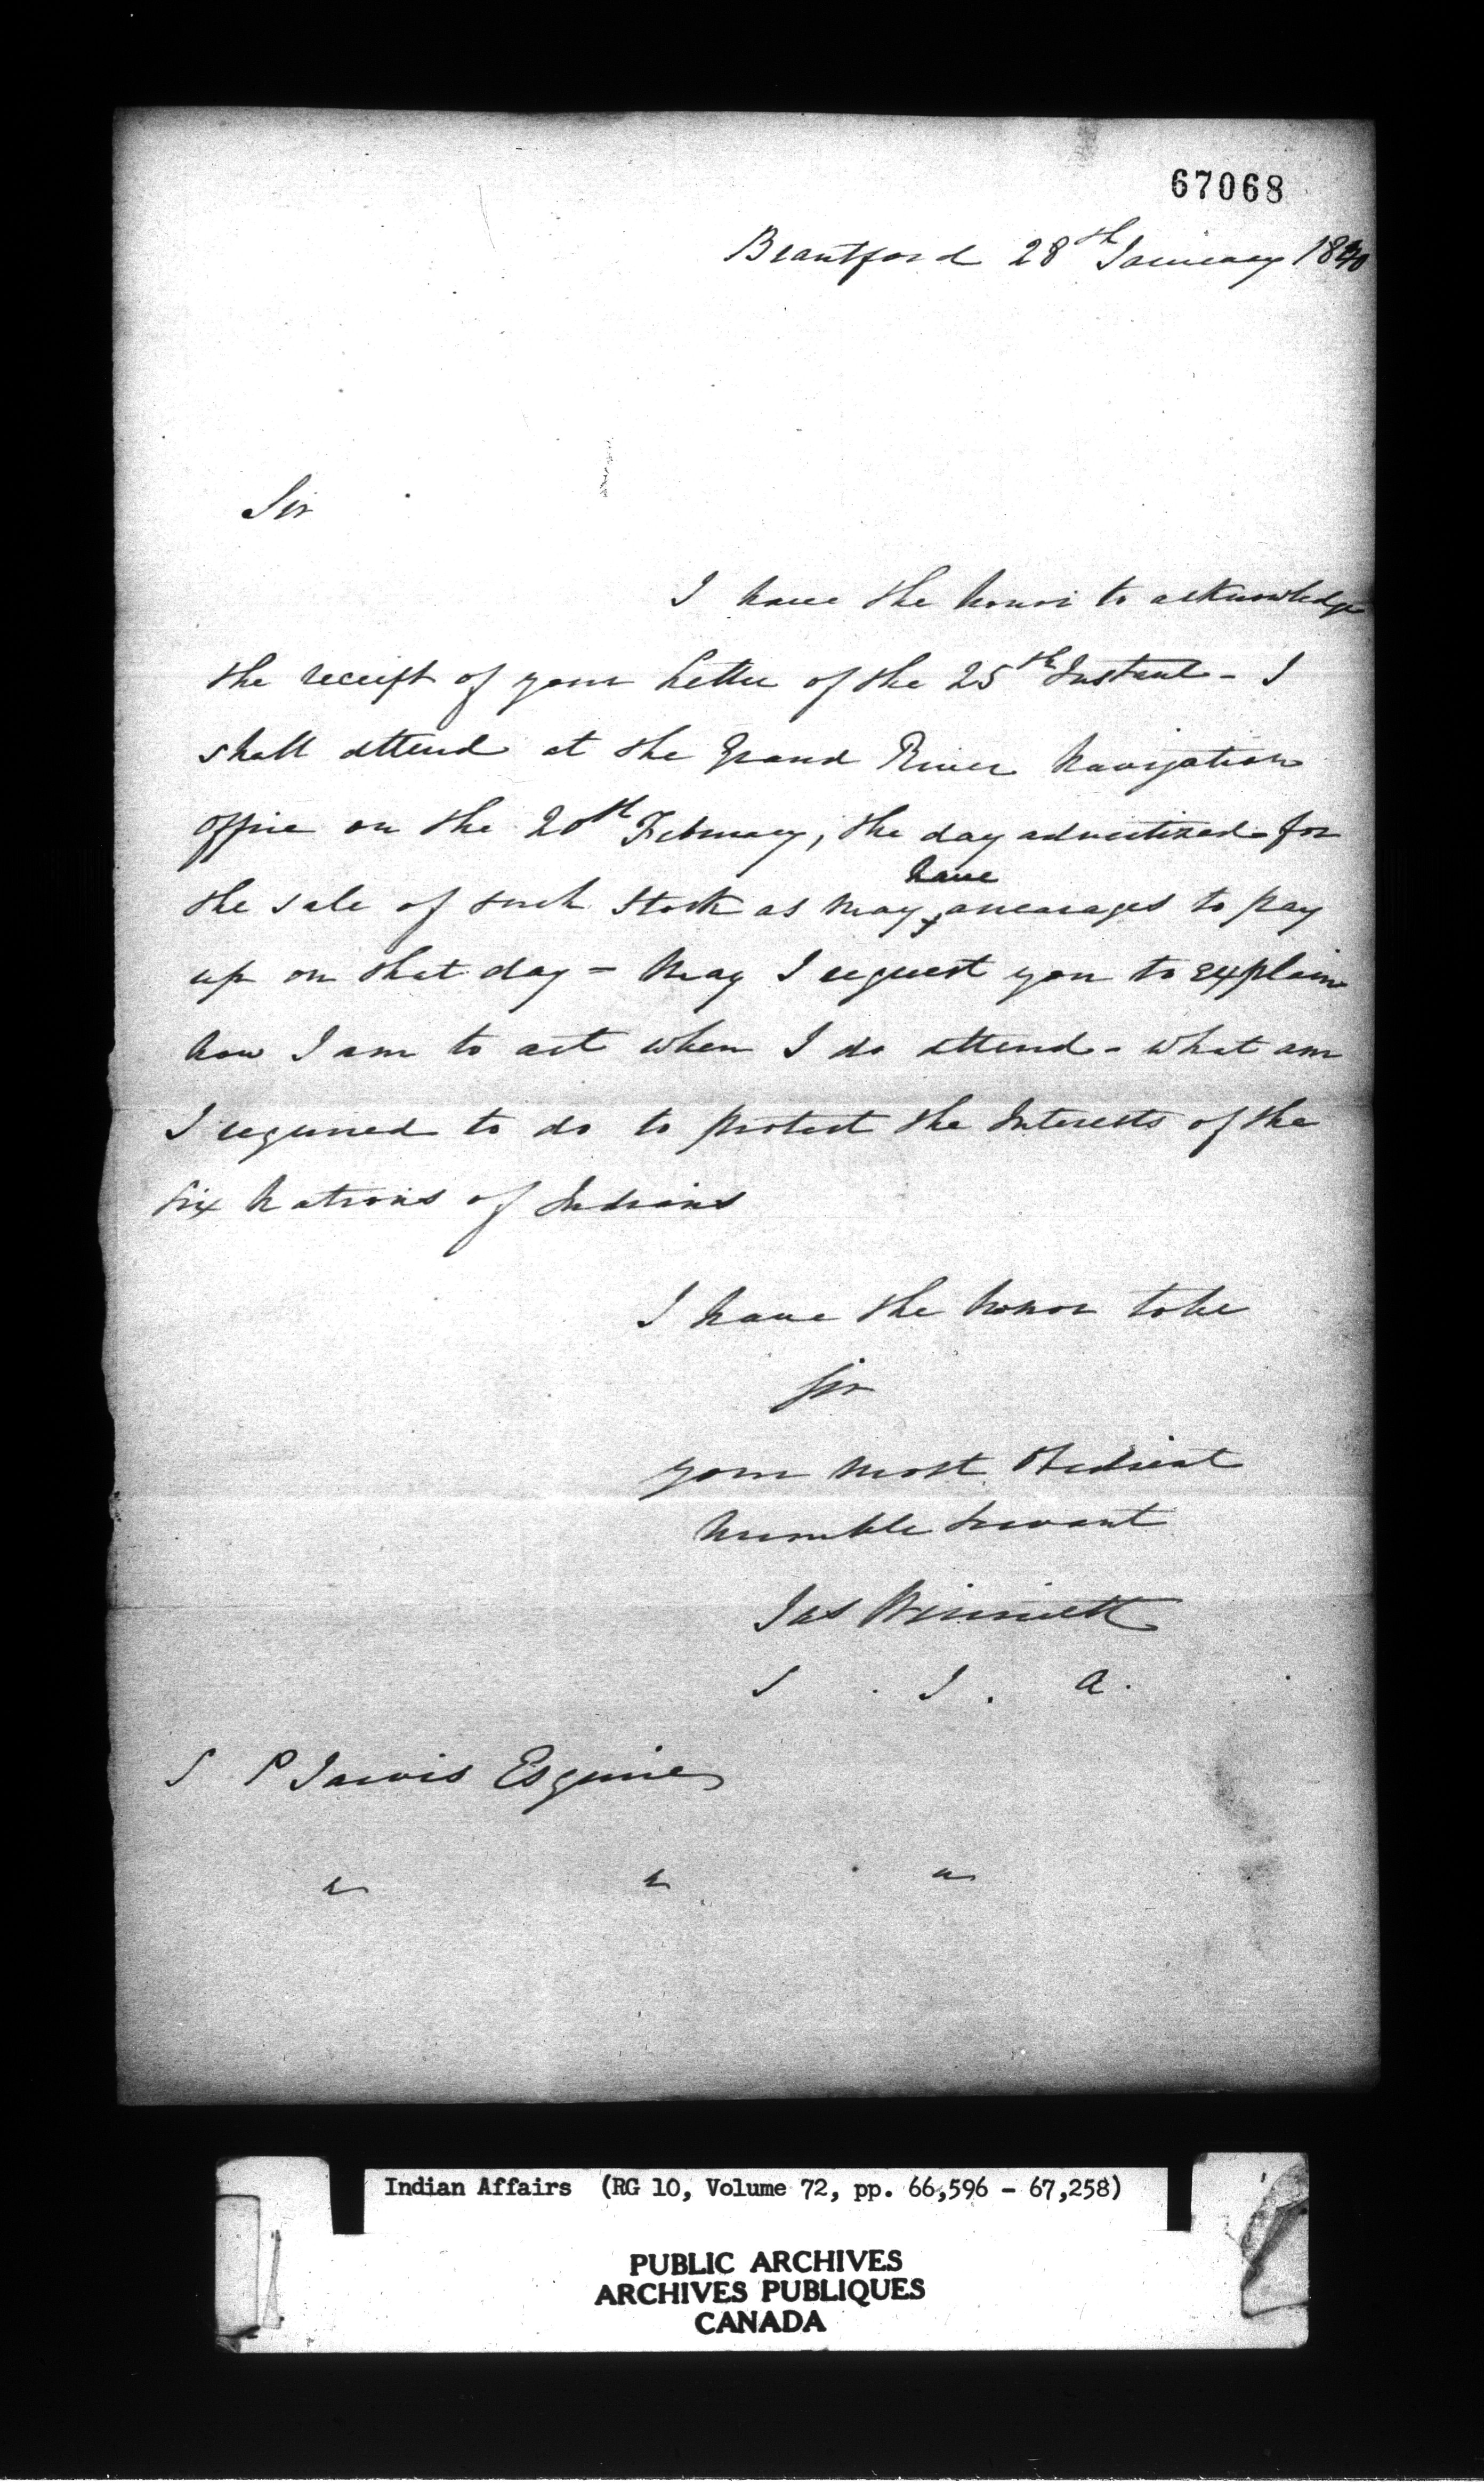 67068
Brantford 28th January 1840
Sir
I have the honor to acknowledge
the receipt of your Letter of the 25th Instant - I
shall attend at the Grand River Navigation
office on the 20th February, the day advertized for
have
the sale of such Stock as may arrearages to pay
up on that day = May I request you to explain
how I am to act when I do attend - what am
I required to do to protect the Interests of the
Six Nations of Indians
I have the honor to be
Sir
your most Obedient
humble Servant
Jas Winniett
S . I . A .
S P Jarvis Esquire
" " "
Indian Affairs (RG 10, Volume 72, pp. 66,596 - 67,258)
PUBLIC ARCHIVES
ARCHIVES PUBLIQUES
CANADA